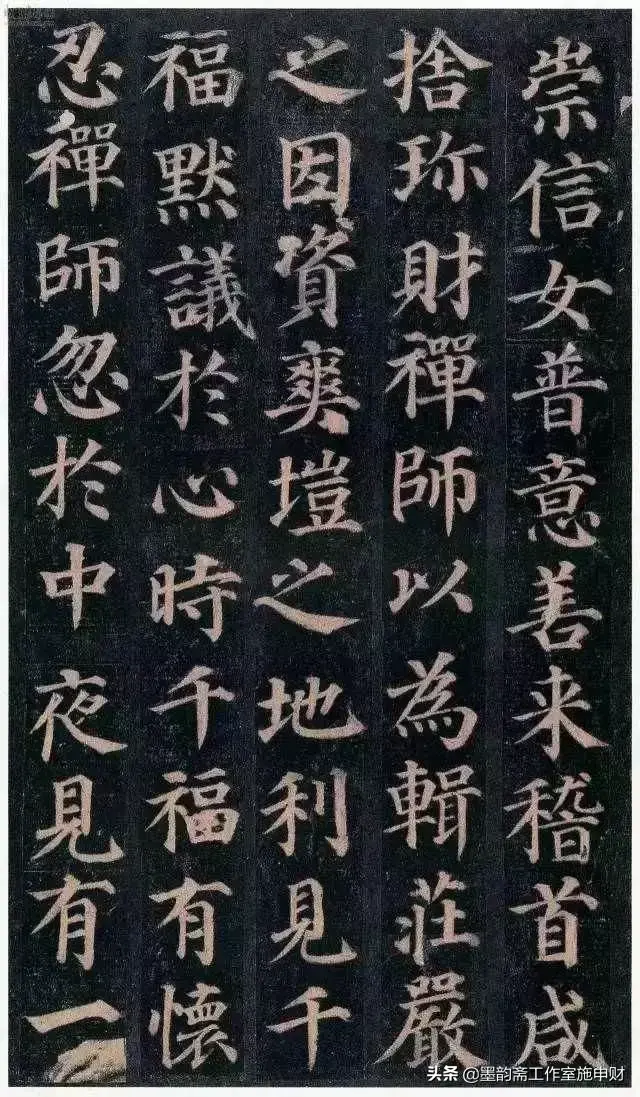 崇信女普意善来稽首咸
捨珎財禪師以為輯莊嚴
之因資爽塏之地利見千
福默議於心時千福有懷
忍禪師忽於中夜見有一
头条 @墨韵斋工作室施申财